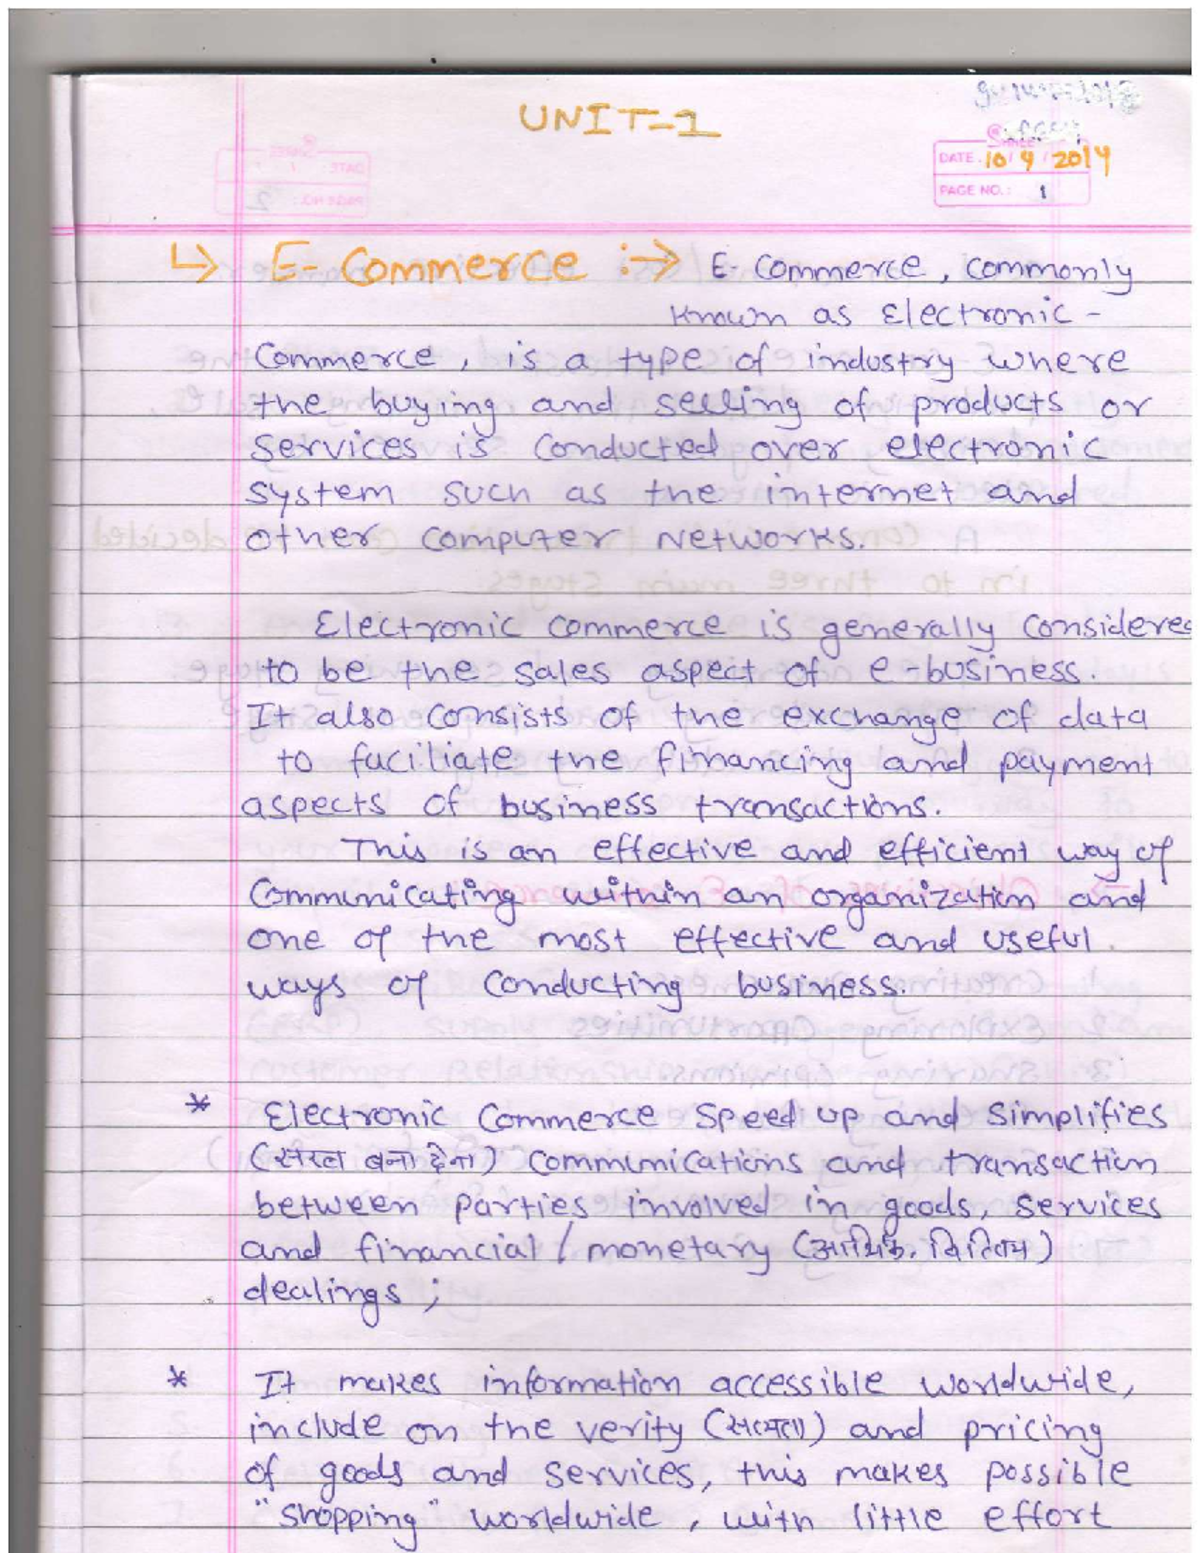 UNIT-1
DATE. 10/4/2014
PAGE NO.: 1
↳ E- Commerce :→ E- Commerce, commonly
known as Electronic -
Commerce, is a type of industry where
the buying and selling of products or
Services is conducted over electronic
System such as the internet and
other computer Networks.
Electronic commerce is generally considered
to be the sales aspect of e-business.
It also consists of the exchange of data
to faciliate the financing and payment
aspects of business transactions.
This is an effective and efficient way of
communicating within an organization and
one of the most effective and useful.
ways of conducting business.
* Electronic Commerce Speed up and Simplifies
(सरल बना देना) communications and transaction
between parties involved in goods, services
and financial / monetary (आर्थिक,
dealings;
* It makes information accessible worldwide,
include on the verity (सत्यता) and pricing
of goods and services, this makes possible
"shopping" worldwide, with little effort